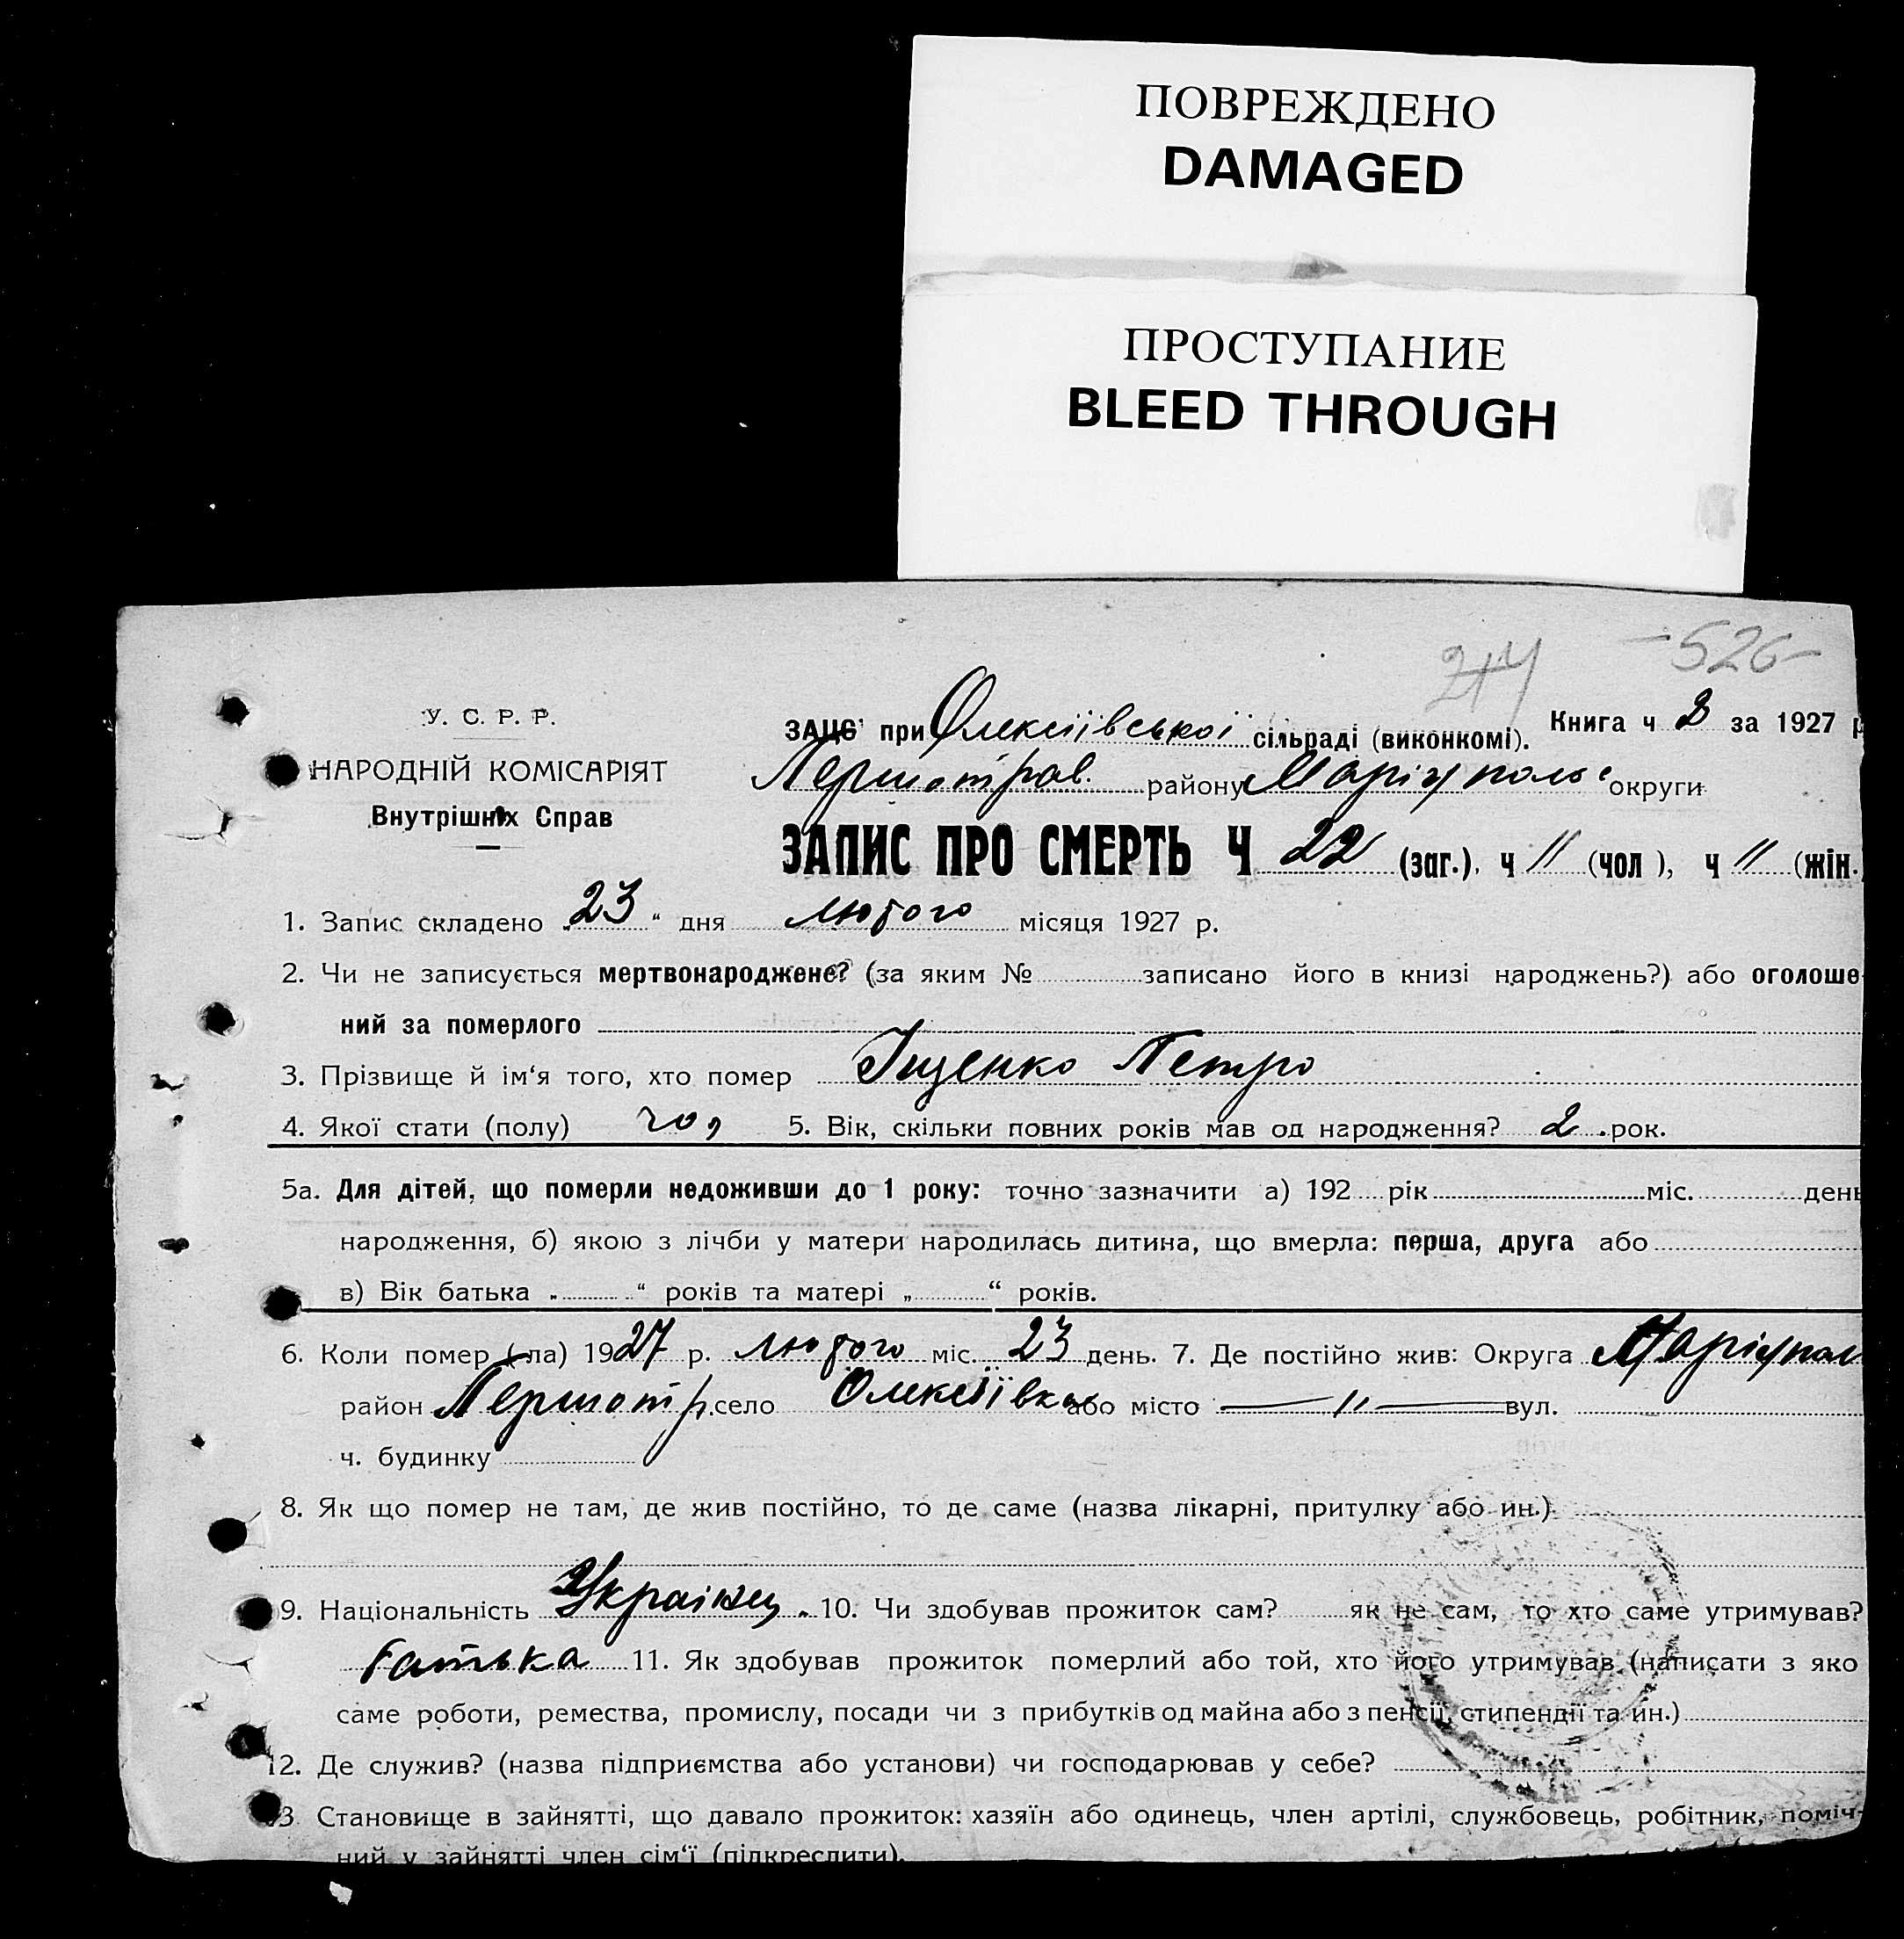 ПОВРЕЖДЕНО
DAMAGED
ПРОСТУПАНИЕ
BLEED THROUGH
-526-
У. С. Р. Р.
НАРОДНІЙ КОМІСАРІЯТ
Внутрішніх Справ
ЗАЦС при Олексіївської сільраді (виконкомі). Книга ч 2 за 1927 р
Першотрав. району Маріупольс округи
ЗАПИС ПРО СМЕРТЬ Ч 22 (заг.). ч 11 (чол ), ч 11 (жін.
1. Запис складено „23“ дня лютого місяця 1927 р.
2. Чи не записується мертвонароджене? (за яким № записано його в книзі народжень?) або оголоше-
ний за померлого
3. Прізвище й ім‘я того, хто помер Іщенко Петро
4. Якої стати (полу) чол 5. Вік, скільки повних років мав од народження? 2 рок.
5а. Для дітей, що померли недоживши до 1 року: точно зазначити а) 192 рік міс. день
народження, б) якою з лічби у матери народилась дитина, що вмерла: перша, друга або
в) Вік батька „ “ років та матері „ “ років.
6. Коли помер (-ла) 1927 р. лютого міс. 23 день. 7. Де постійно жив: Округа Маріупол
район Першотр. село Олексіївка або місто —〃— вул.
ч. будинку
8. Як що помер не там, де жив постійно, то де саме (назва лікарні, притулку або ин.)
9. Національність Українец. 10. Чи здобував прожиток сам? як не сам, то хто саме утримував?
батька 11. Як здобував прожиток померлий або той, хто його утримував (написати з яко
саме роботи, ремества, промислу, посади чи з прибутків од майна або з пенсії, стипендії та ин.)
12. Де служив? (назва підприємства або установи) чи господарював у себе?
13. Становище в зайнятті, що давало прожиток: хазяїн або одинець, член артілі, службовець, робітник, поміч-
ний у зайнятті член сім‘ї (підкреслити).